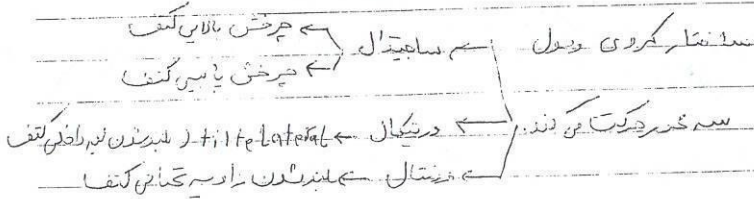 ساختار کروی وصول ← ساجیتال ← چرخش بالایی کتف
← چرخش پایینی کتف
سه محور حرکت می کند. ← ورتیکال ← tilt lateral بلند شدن لبه داخلی کتف
← فرنتال ← بلند شدن زاویه تحتانی کتف